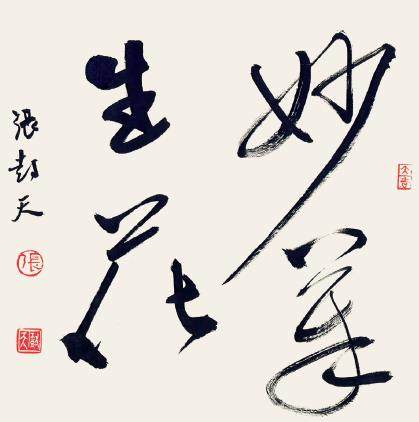 妙筆
生花
張
天
張